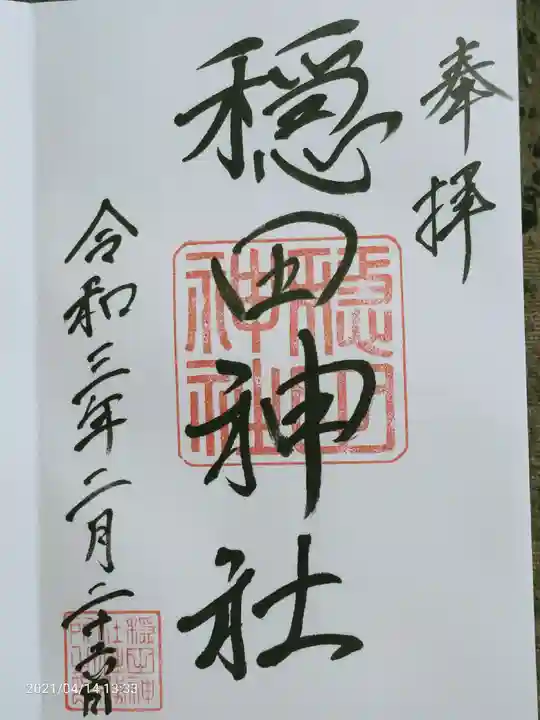 奉拝
穏田神社
穏田
神社
令和三年二月二十六日
2021/04/14 13:33